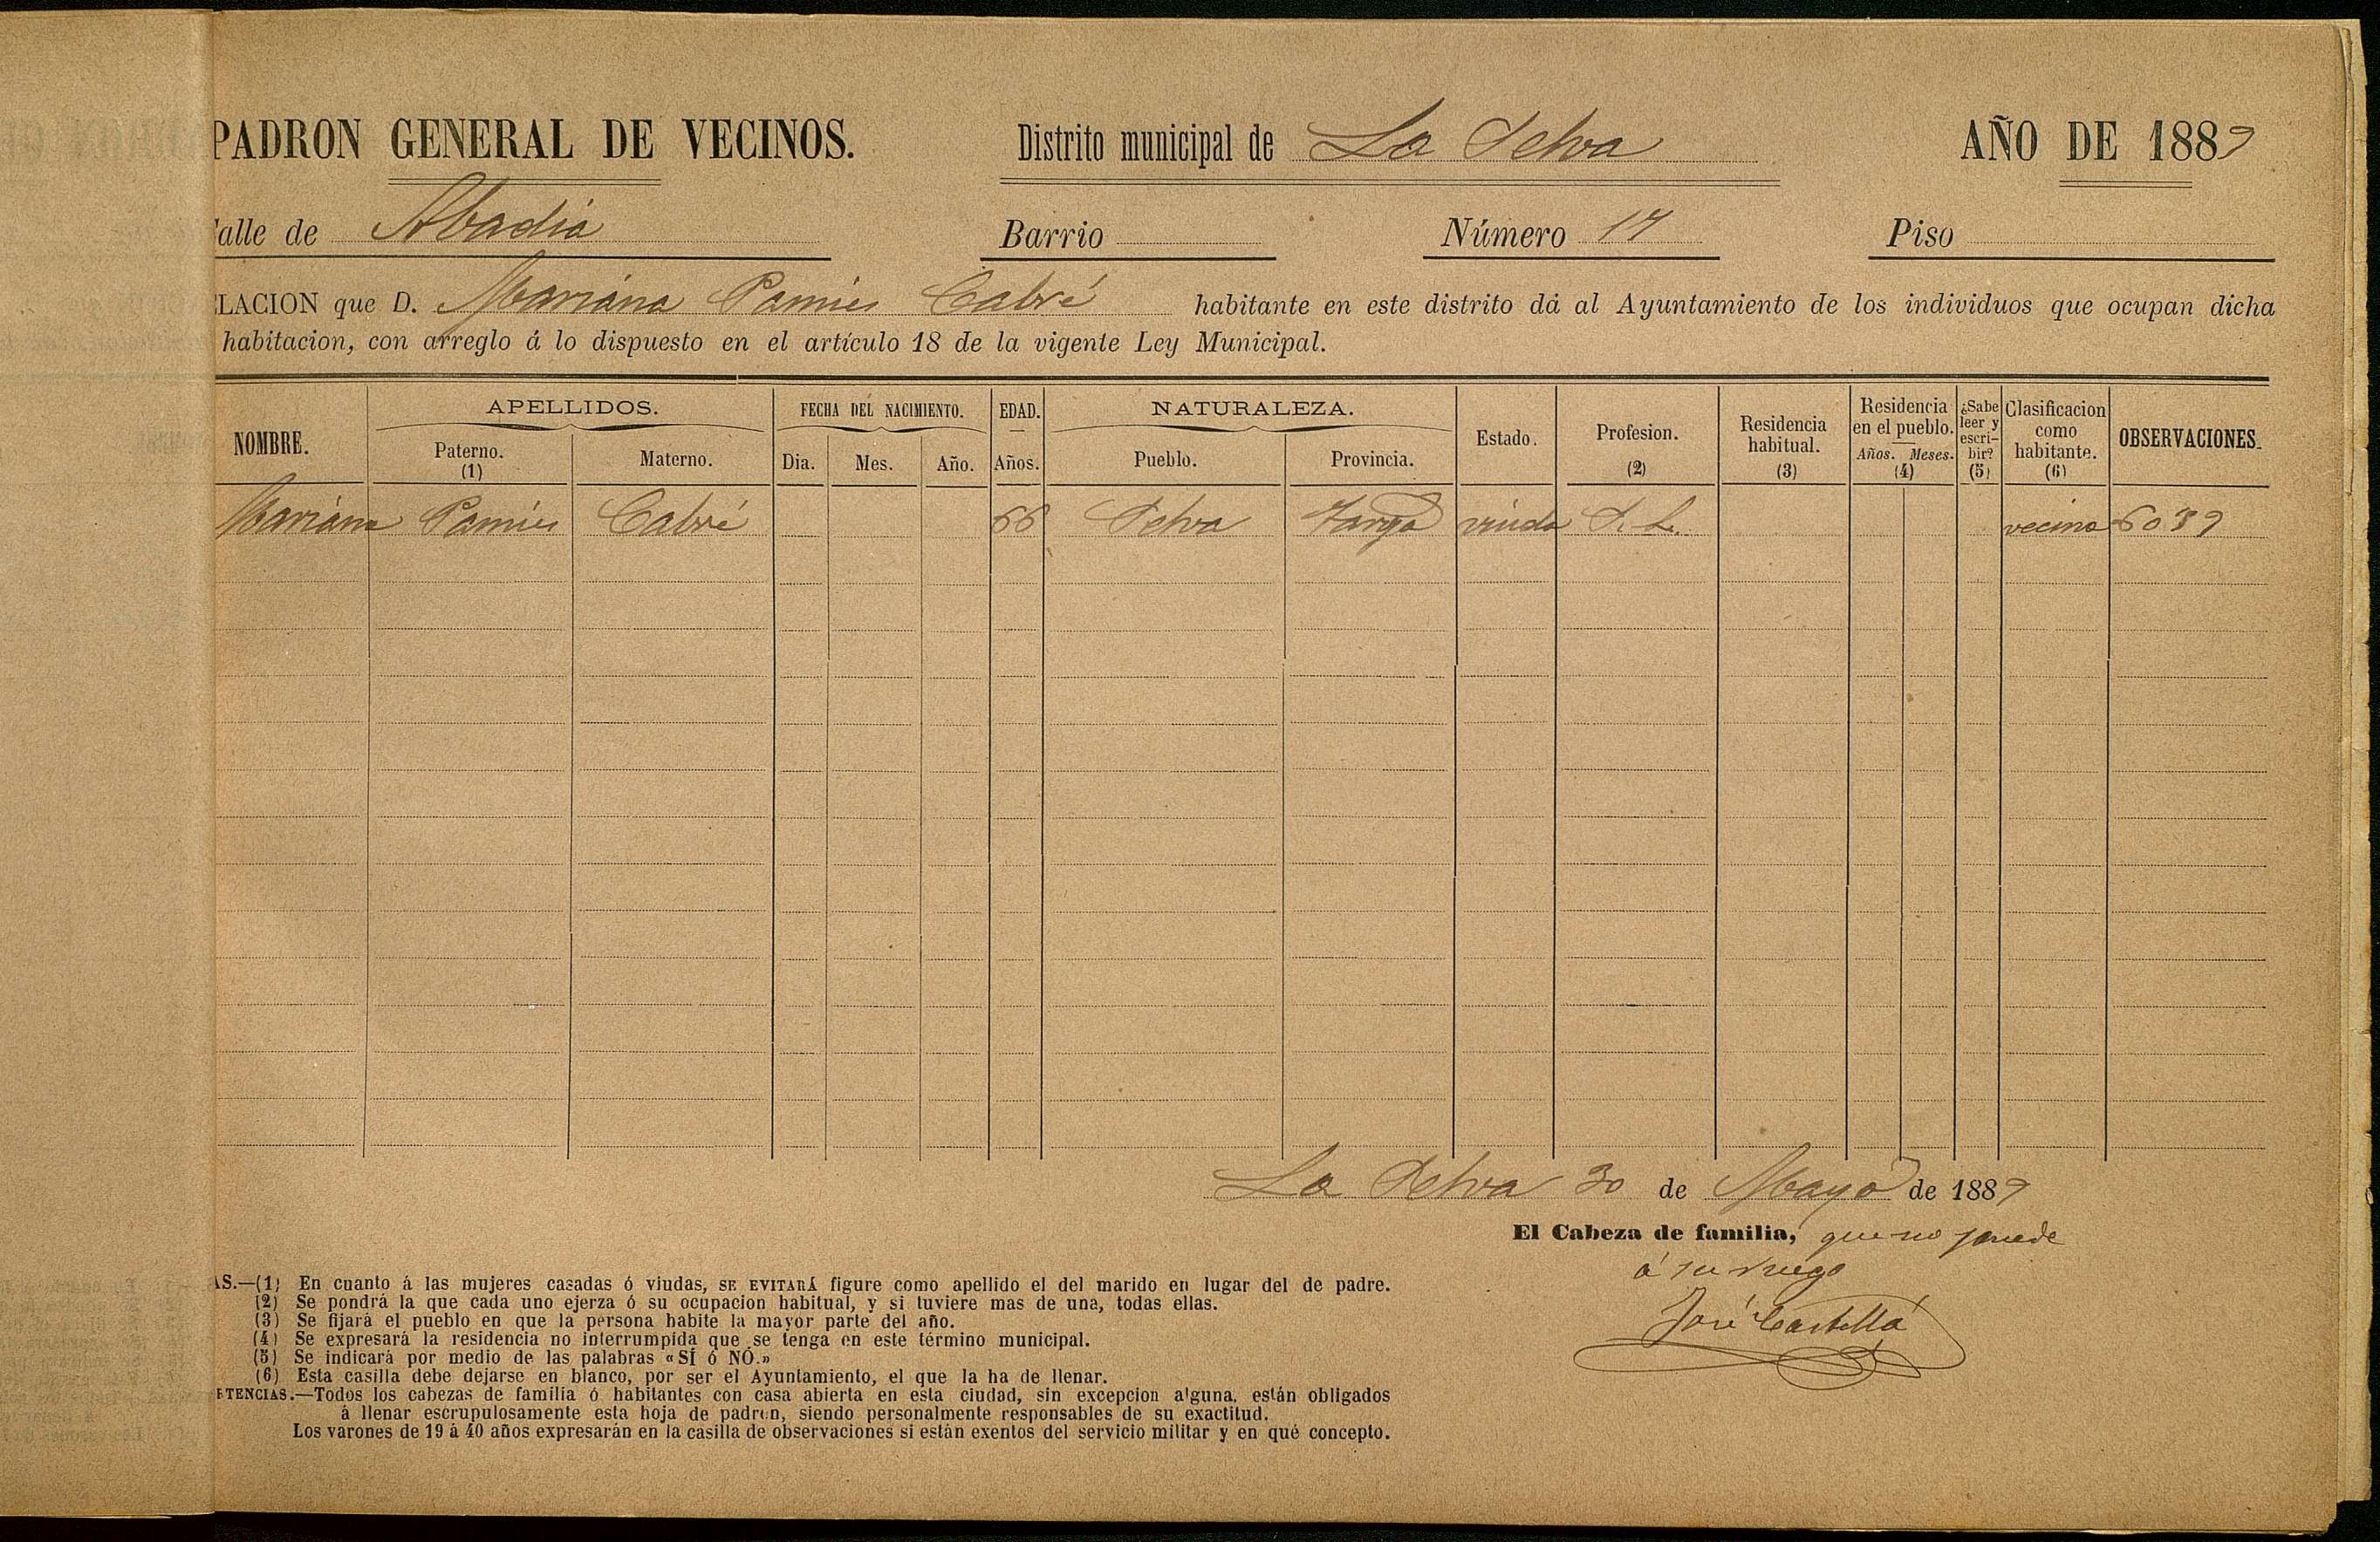 PADRON GENERAL DE VECINOS. Distrito municipal de La Selva AÑO DE 1889
alle de Abadia Barrio Número 17 Piso
LACION que D. Mariana Pamies Cabré habitante en este distrito dá al Ayuntamiento de los individuos que ocupan dicha
habitacion, con arreglo á lo dispuesto en el artículo 18 de la vigente Ley Municipal.
NOMBRE. APELLIDOS. FECHA DEL NACIMIENTO. EDAD. NATURALEZA. Estado. Profesion. (2) Residencia habitual. (3) Residencia en el pueblo. (4) ¿Sabe leer y escri-bir? (5) Clasificacion como habitante. (6) OBSERVACIONES.
Paterno. (1) Materno. Dia. Mes. Año. Años. Pueblo. Provincia. Años. Meses.
Mariana Pamies Cabré 66 Selva Tarrga viuda S. L. vecina 6089
La Selva 30 de Mayo de 1889
El Cabeza de familia, que no puede
á su ruego
José Castellá
AS.—(1) En cuanto á las mujeres casadas ó viudas, SE EVITARÁ figure como apellido el del marido en lugar del de padre.
(2) Se pondrá la que cada uno ejerza ó su ocupacion habitual, y si tuviere mas de una, todas ellas.
(3) Se fijará el pueblo en que la persona habite la mayor parte del año.
(4) Se expresará la residencia no interrumpida que se tenga en este término municipal.
(5) Se indicará por medio de las palabras «SÍ ó NÓ.»
(6) Esta casilla debe dejarse en blanco, por ser el Ayuntamiento, el que la ha de llenar.
TENCIAS.—Todos los cabezas de familia ó habitantes con casa abierta en esta ciudad, sin excepcion alguna, están obligados
á llenar escrupulosamente esta hoja de padron, siendo personalmente responsables de su exactitud.
Los varones de 19 á 40 años expresarán en la casilla de observaciones si están exentos del servicio militar y en qué concepto.